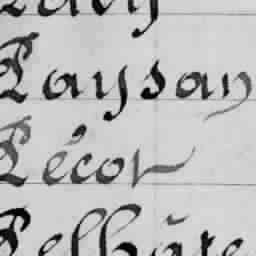 Paysan
Pécot
Pelhâte